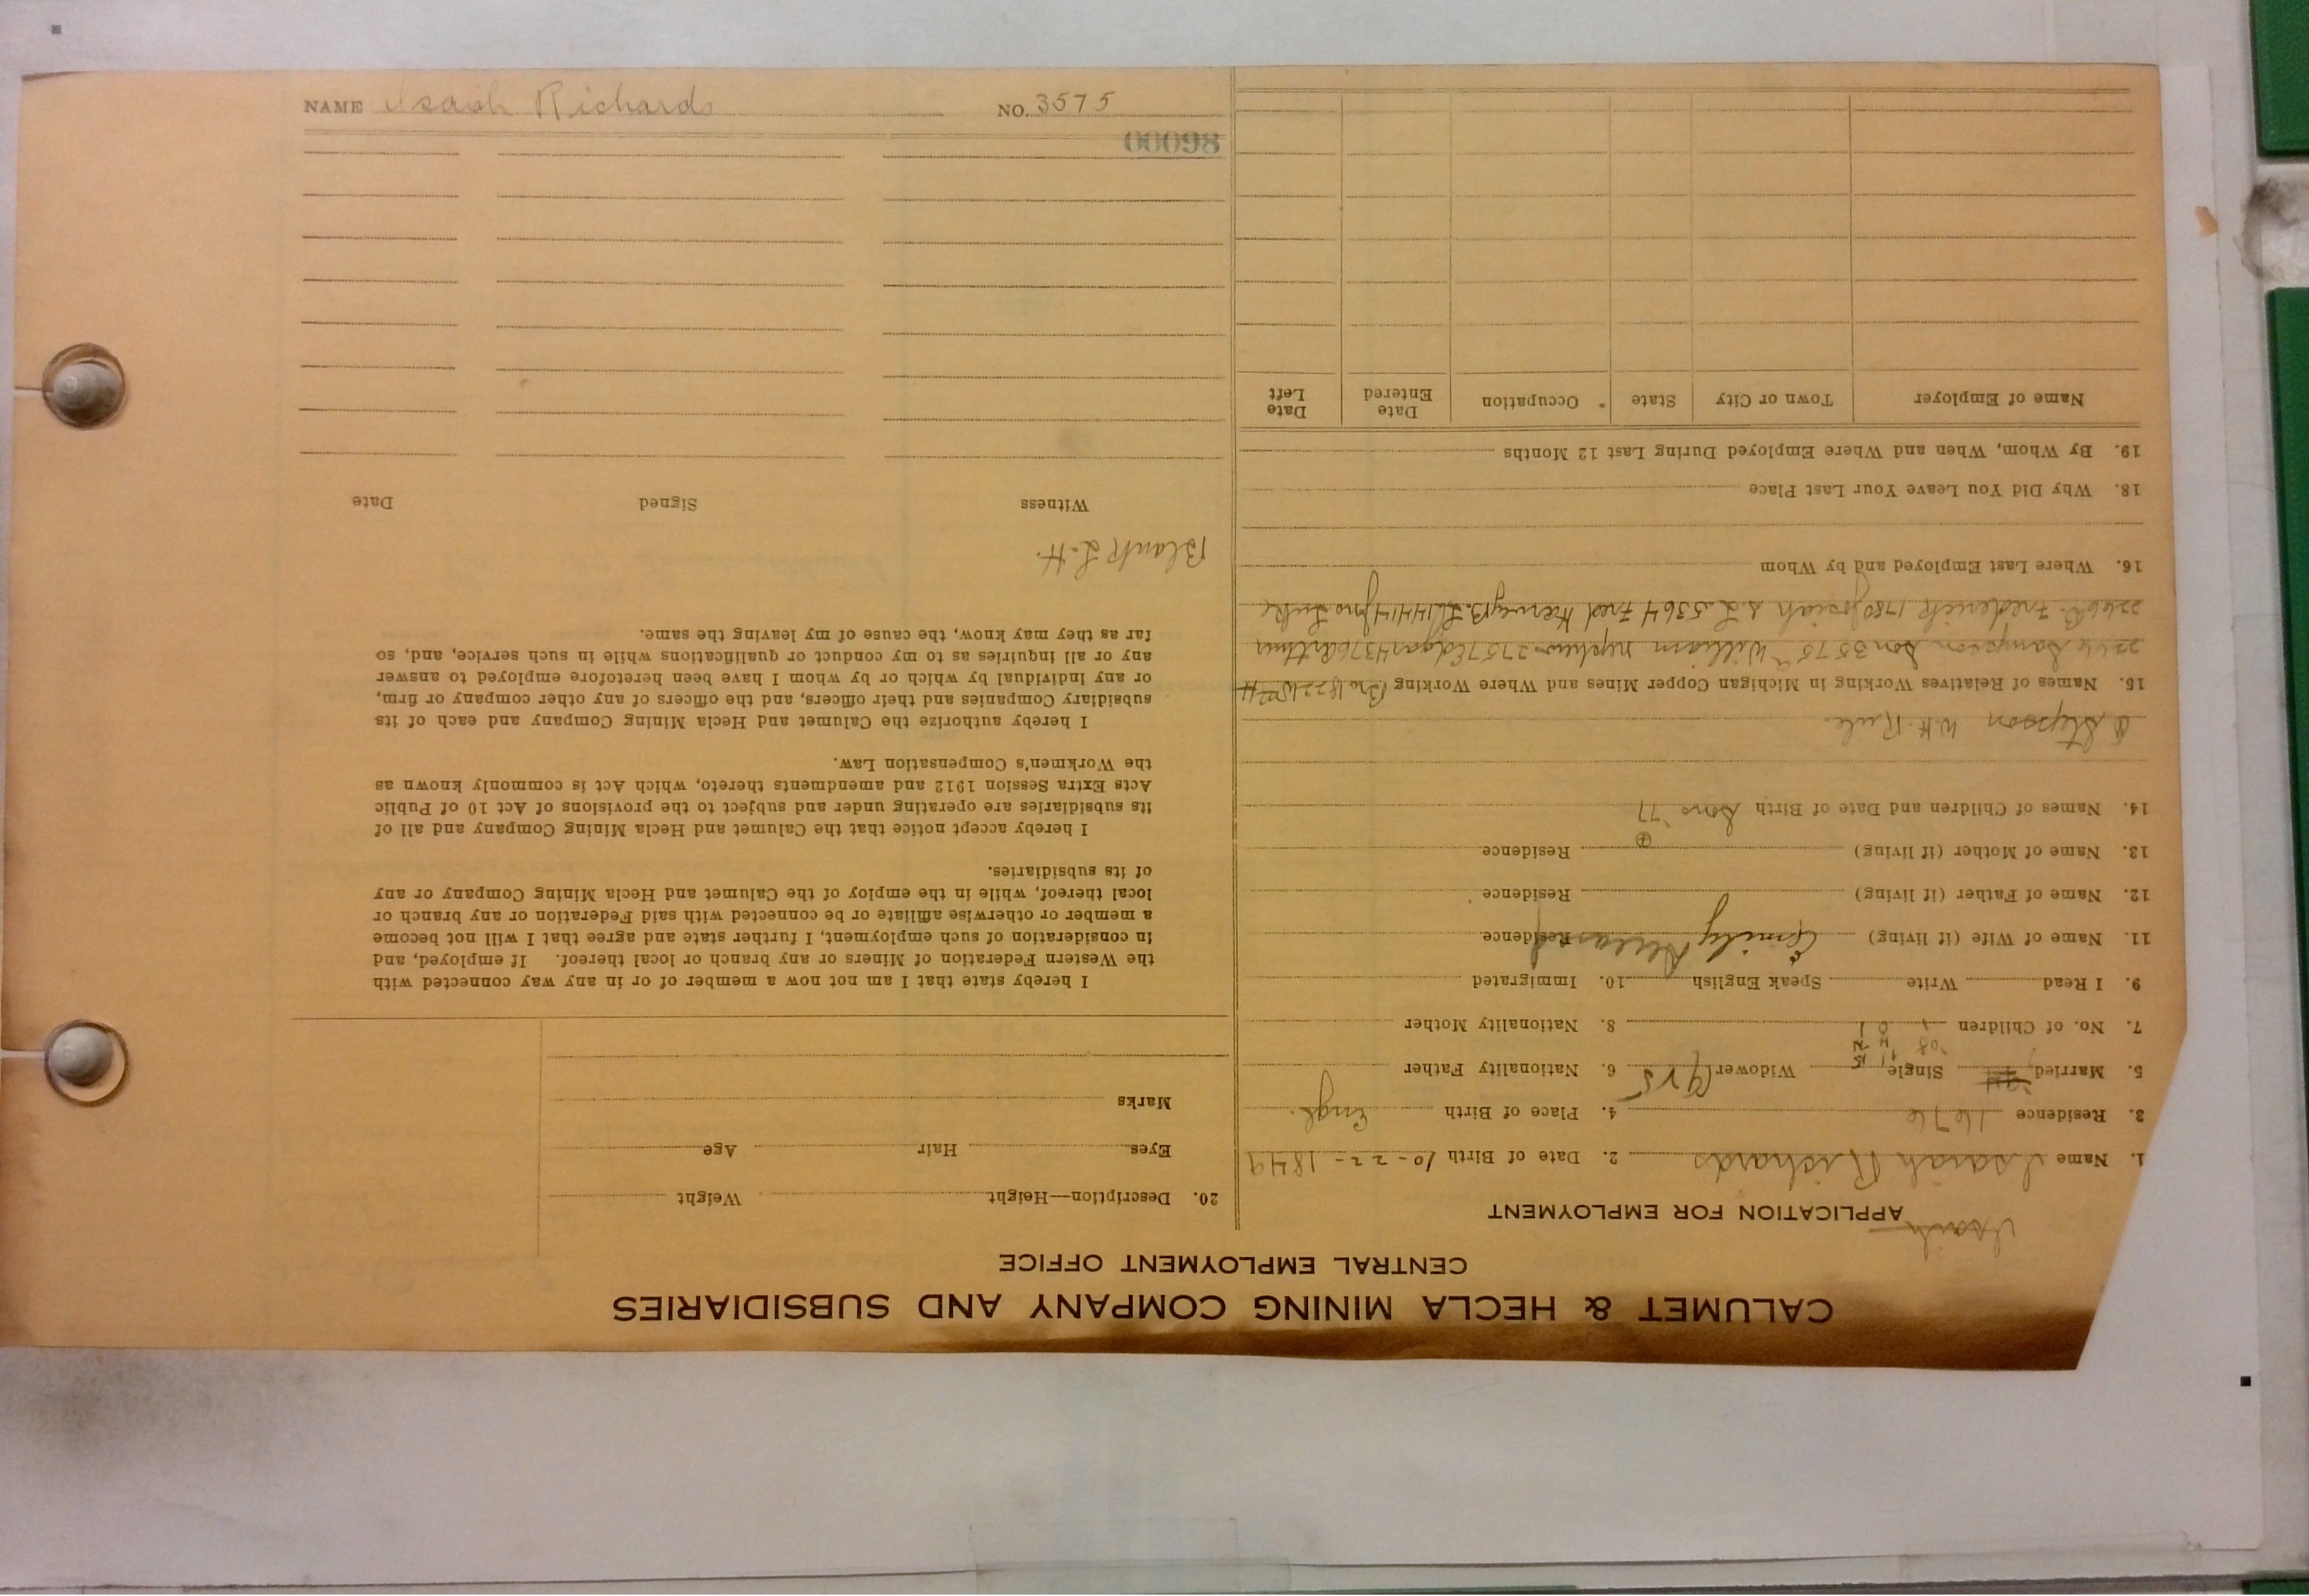 NAME Isaah Richards NO. 3575
00098
CALUMET & HECLA MINING COMPANY AND SUBSIDIARIES
CENTRAL EMPLOYMENT OFFICE
Isaiah
APPLICATION FOR EMPLOYMENT
1. Name Isaiah Richards 2. Date of Birth 10-22-1849
3. Residence 1676 4. Place of Birth Engl.
5. Married Single Widower 6. Nationality Father
7. No. of Children 8. Nationality Mother
9. I Read Write Speak English 10. Immigrated
11. Name of Wife (if living) Emily Residence
12. Name of Father (if living) Residence
13. Name of Mother (if living) Residence
14. Names of Children and Date of Birth Sons '77
Stepson W.H. Rule
15. Names of Relatives Working in Michigan Copper Mines and Where Working Bro
Sampson Son 3575 William nephew 2757 Edgar 4376 Arthur
2266 Frederick 1780 Josiah S.L. 5364 Fred Harvey B. 14414 Jno Luke
16. Where Last Employed and by Whom
18. Why Did You Leave Your Last Place
19. By Whom, When and Where Employed During Last 12 Months
Name of Employer Town or City State Occupation Date Entered Date Left
20. Description—Height Weight
Eyes Hair Age
Marks
I hereby state that I am not now a member of or in any way connected with
the Western Federation of Miners or any branch or local thereof. If employed, and
in consideration of such employment, I further state and agree that I will not become
a member or otherwise affiliate or be connected with said Federation or any branch or
local thereof, while in the employ of the Calumet and Hecla Mining Company or any
of its subsidiaries.
I hereby accept notice that the Calumet and Hecla Mining Company and all of
its subsidiaries are operating under and subject to the provisions of Act 10 of Public
Acts Extra Session 1912 and amendments thereto, which Act is commonly known as
the Workmen's Compensation Law.
I hereby authorize the Calumet and Hecla Mining Company and each of its
subsidiary Companies and their officers, and the officers of any other company or firm,
or any individual by which or by whom I have been heretofore employed to answer
any or all inquiries as to my conduct or qualifications while in such service, and, so
far as they may know, the cause of my leaving the same.
Blank L.H.
Witness Signed Date